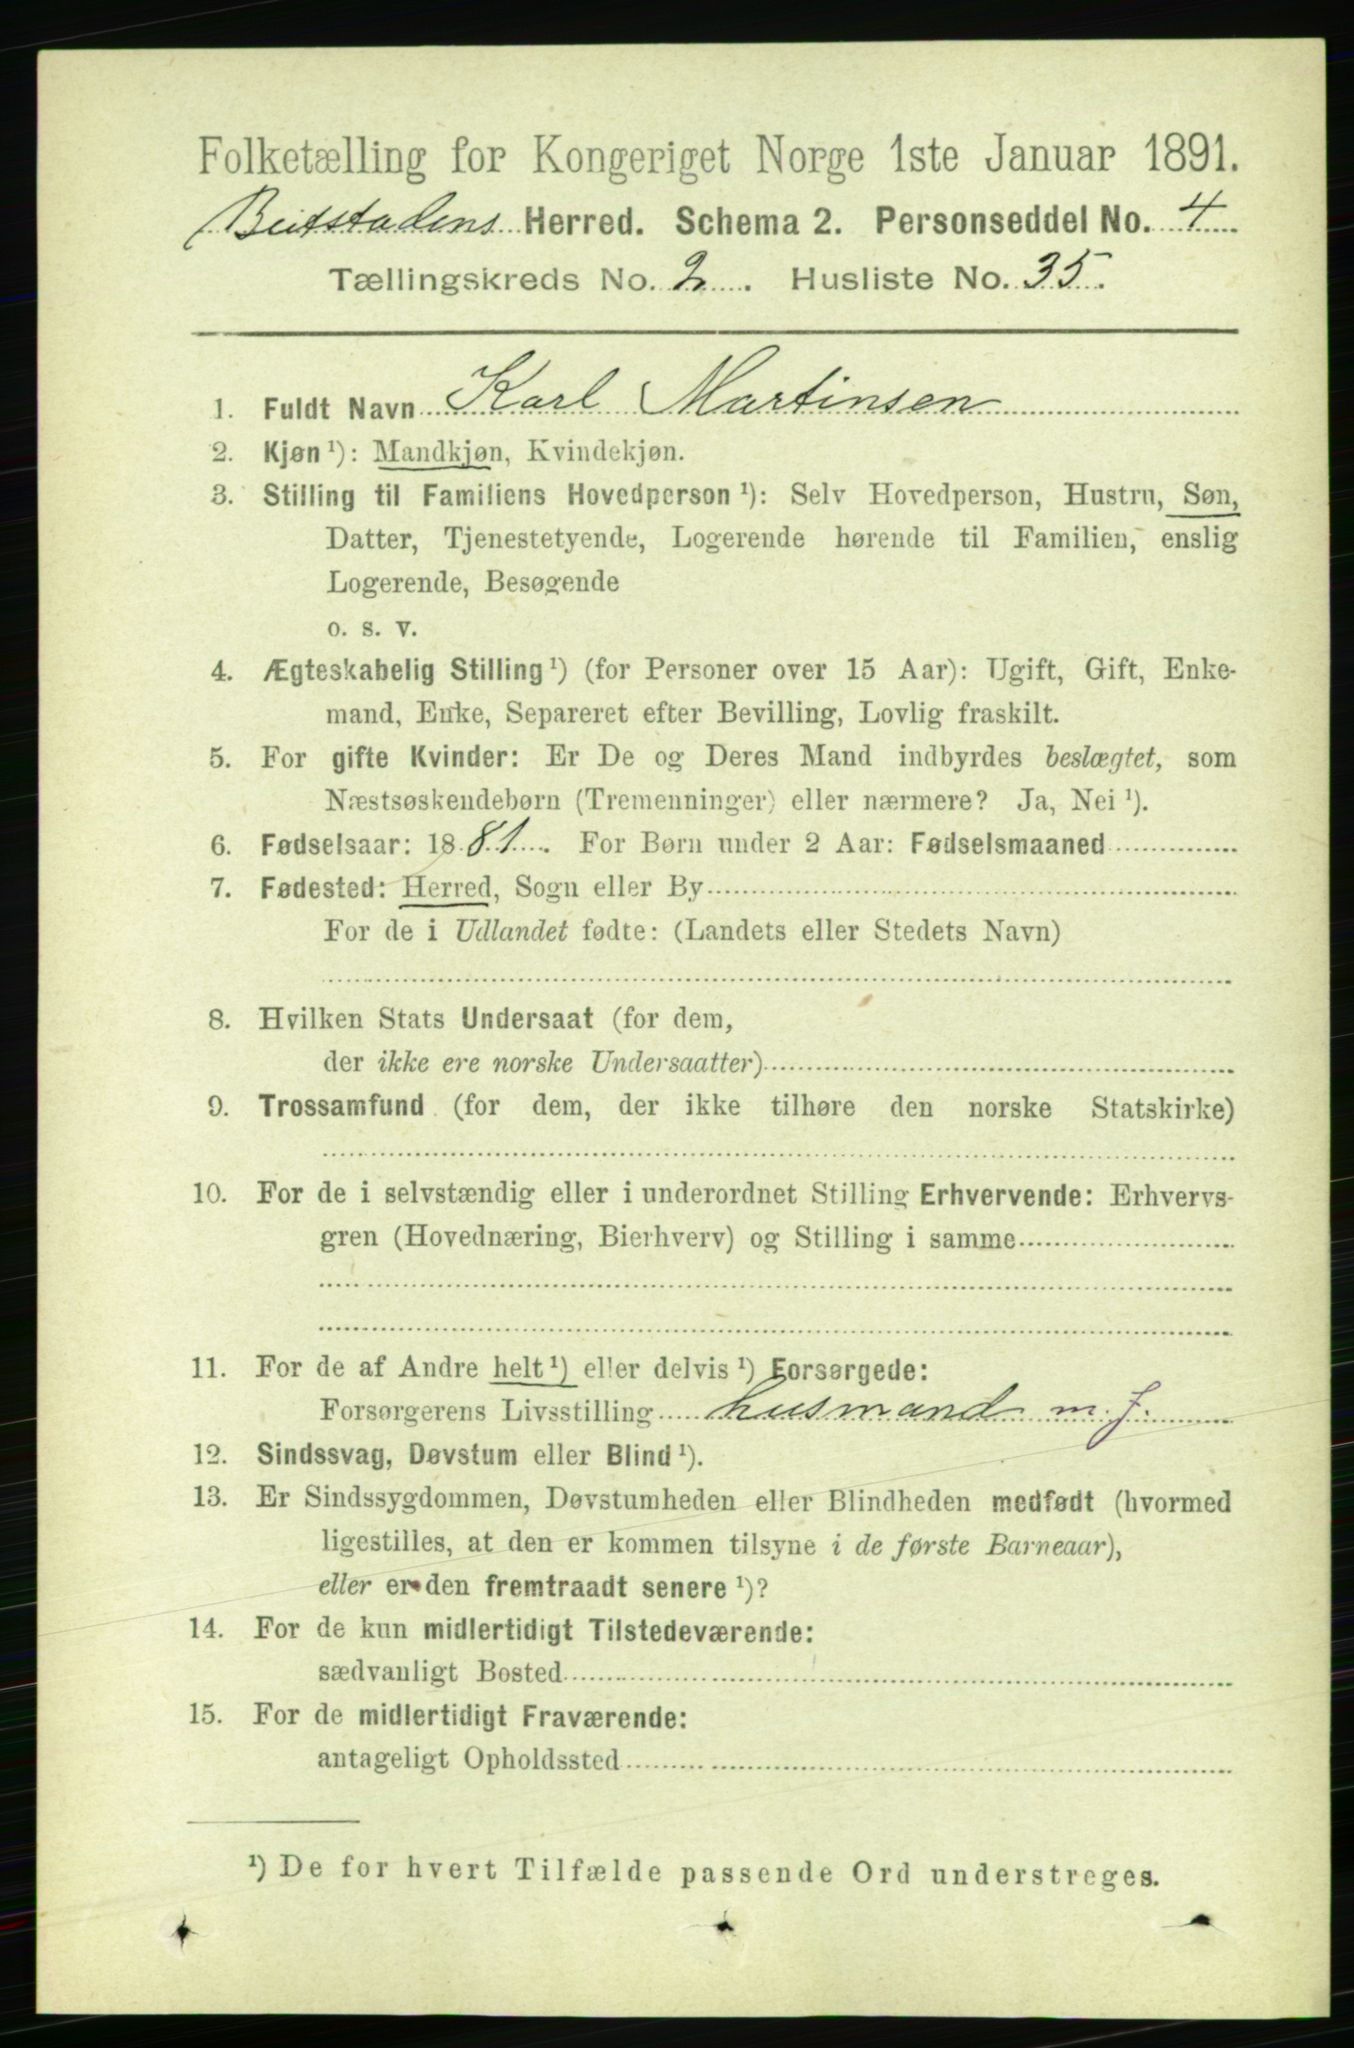 Folketælling for Kongeriget Norge 1ste Januar 1891.
Beitstadens Herred. Schema 2. Personseddel No. 4
Tællingskreds No. 2. Husliste No. 35.
1. Fuldt Navn Karl Martinsen
2. Kjøn ¹): Mandkjøn, Kvindekjøn.
3. Stilling til Familiens Hovedperson ¹): Selv Hovedperson, Hustru, Søn,
Datter, Tjenestetyende, Logerende hørende til Familien, enslig
Logerende, Besøgende
o. s. v.
4. Ægteskabelig Stilling ¹) (for Personer over 15 Aar): Ugift, Gift, Enke-
mand, Enke, Separeret efter Bevilling, Lovlig fraskilt.
5. For gifte Kvinder: Er De og Deres Mand indbyrdes beslægtet, som
Næstsøskendebørn (Tremenninger) eller nærmere? Ja, Nei ¹).
6. Fødselsaar: 1881. For Børn under 2 Aar: Fødselsmaaned
7. Fødested: Herred, Sogn eller By
For de i Udlandet fødte: (Landets eller Stedets Navn)
8. Hvilken Stats Undersaat (for dem,
der ikke ere norske Undersaatter)
9. Trossamfund (for dem, der ikke tilhøre den norske Statskirke)
10. For de i selvstændig eller i underordnet Stilling Erhvervende: Erhvervs-
gren (Hovednæring, Bierhverv) og Stilling i samme
11. For de af Andre helt ¹) eller delvis ¹) Forsørgede:
Forsørgerens Livsstilling husmand m. j.
12. Sindssvag, Døvstum eller Blind ¹).
13. Er Sindssygdommen, Døvstumheden eller Blindheden medfødt (hvormed
ligestilles, at den er kommen tilsyne i de første Barneaar),
eller er den fremtraadt senere ¹)?
14. For de kun midlertidigt Tilstedeværende:
sædvanligt Bosted
15. For de midlertidigt Fraværende:
antageligt Opholdssted
¹) De for hvert Tilfælde passende Ord understreges.